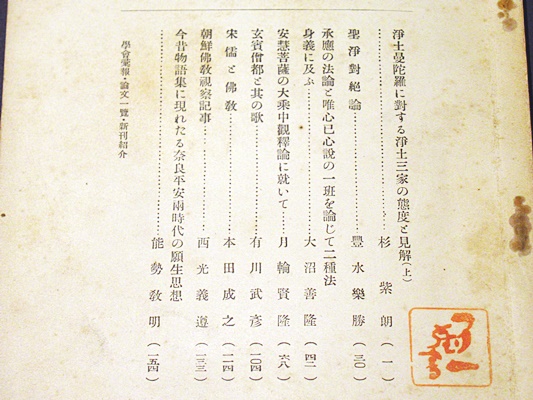 淨土曼陀羅に對する淨土三家の態度と見解(上)
杉紫朗(一)
聖淨對絕論……豐水樂勝(三〇)
承應の法論と唯心己心說の一班を論じて二種法
身義に及ぶ……大沼善隆(四二)
安慧菩薩の大乘中觀釋論に就いて……月輪賢隆(六八)
玄賓僧都と其の歌……有川武彥(一〇四)
宋儒と佛敎……本田成之(一一四)
朝鮮佛敎視察記事……西光義遵(一三三)
今昔物語集に現れたる奈良平安兩時代の願生思想
……能勢敎明(一五四)
學會彙報・論文一覽・新刊紹介